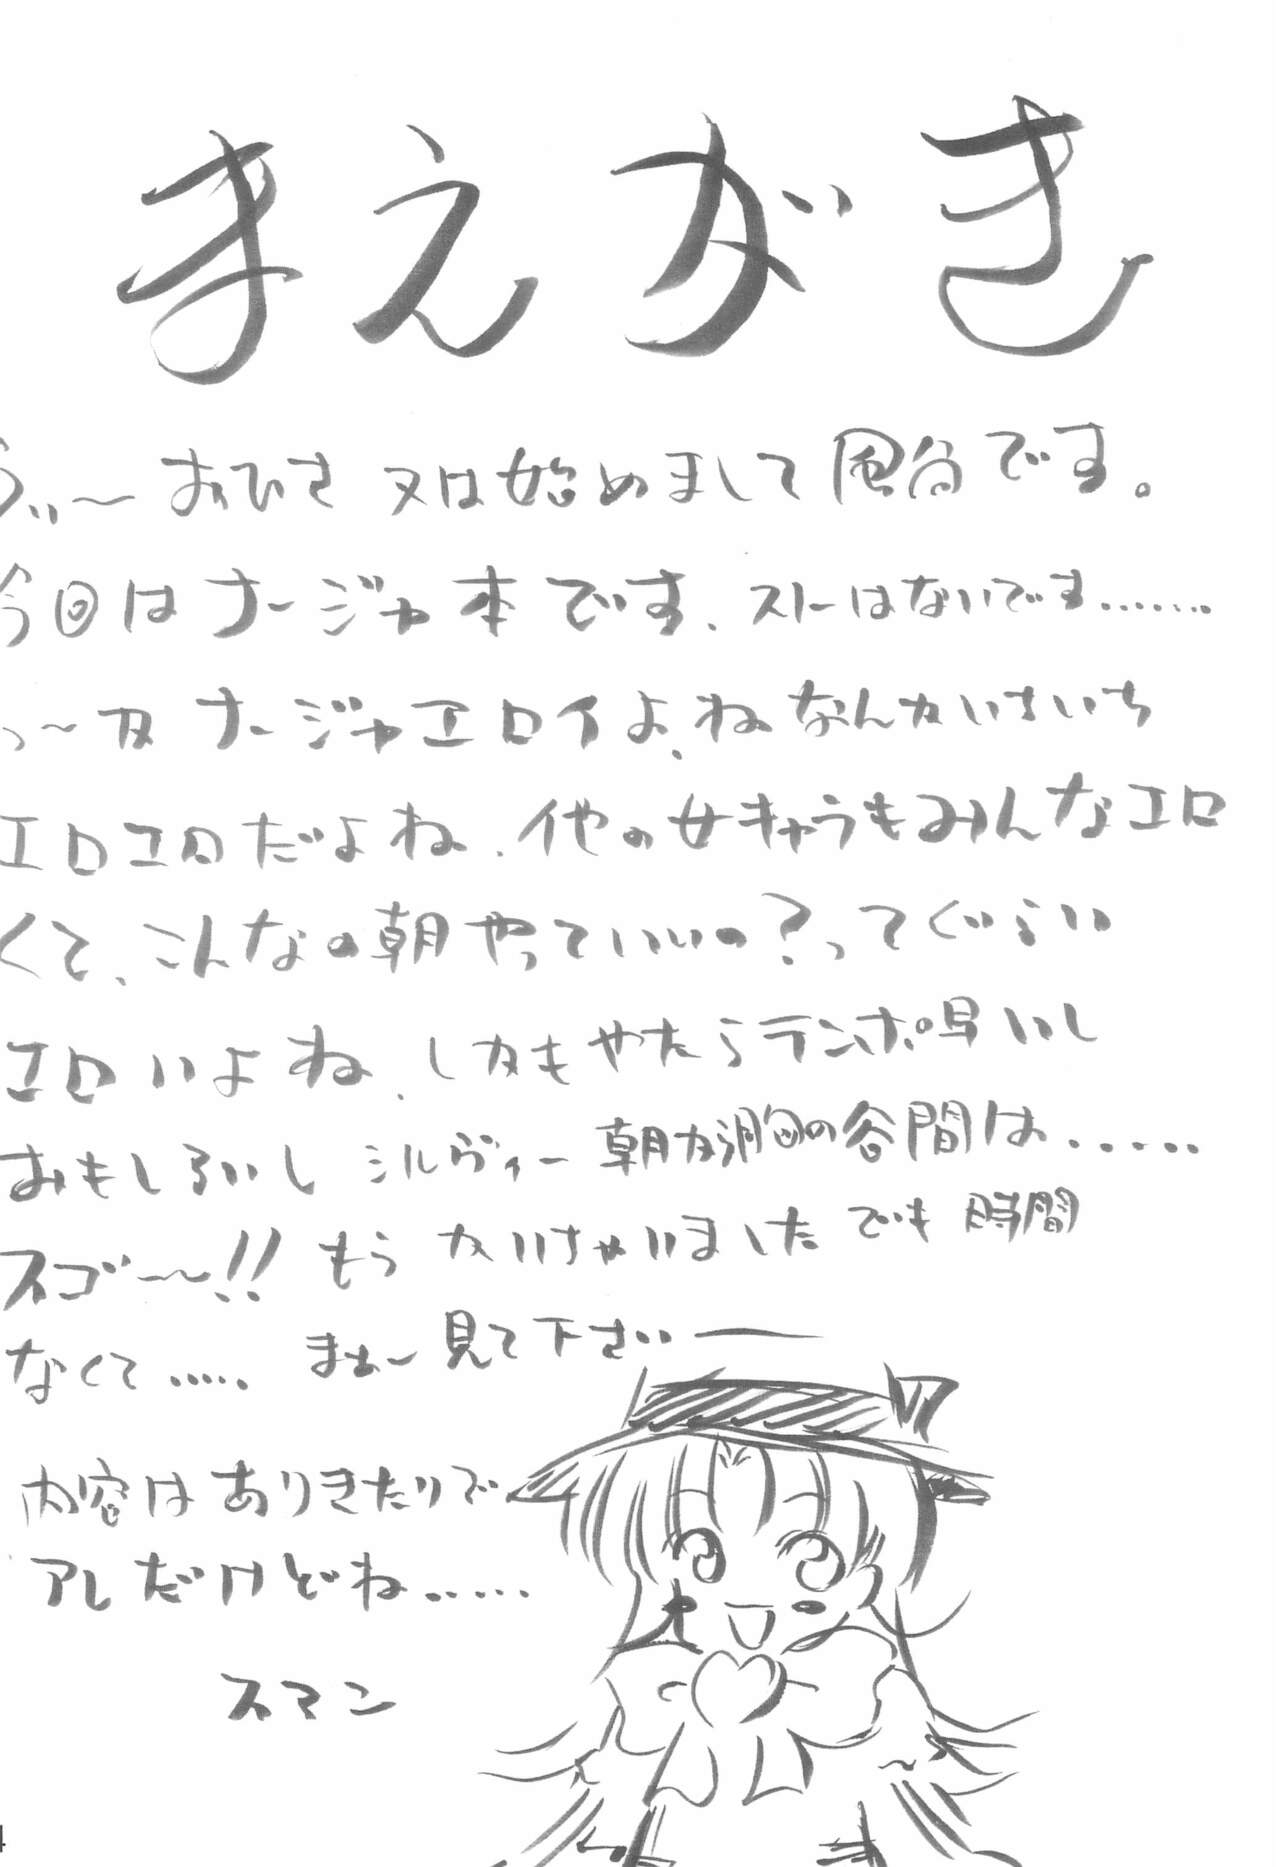 まえがき
うぃ～おひさ 又は始めまして 風白です。
今回はナージャ本です、ストーはないです.......
っ～カ ナージャエロイよ、ね なんかいちいち
エロエロだよね、他の女キャラもみんなエロ
くて、こんなの朝やっていいの?ってぐらい
エロいよね、しかもやたらテンポ早いし
おもしろいし シルヴィー 朝カラ胸の谷間は.....
スゴ～!! もう かいちゃいました でも 時間
なくて..... まぁ～見て下さいー
内容はありきたりで
アレだけどね.....
スマン
4